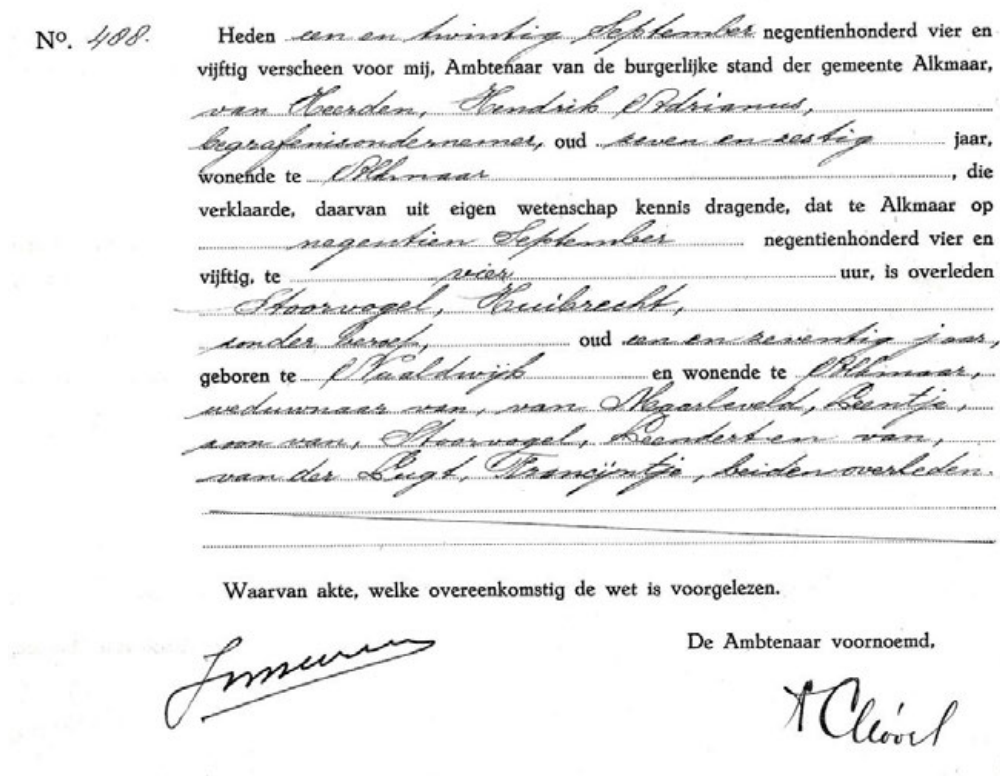 Nº. 488.
Heden een en twintig September negentienhonderd vier en
vijftig verscheen voor mij, Ambtenaar van de burgerlijke stand der gemeente Alkmaar,
van Heerden, Hendrik Adrianus,
begrafenisondernemer, oud zeven en zestig jaar,
wonende te Alkmaar, die
verklaarde, daarvan uit eigen wetenschap kennis dragende, dat te Alkmaar op
negentien September negentienhonderd vier en
vijftig, te vier uur, is overleden
Stoorvogel, Huibrecht,
zonder beroep, oud een en zeventig jaar,
geboren te Naaldwijk en wonende te Alkmaar,
weduwnaar van, van Maarleveld, Leentje,
zoon van, Stoorvogel, Leendert en van,
van der Lugt, Francijntje, beiden overleden.
Waarvan akte, welke overeenkomstig de wet is voorgelezen.
De Ambtenaar voornoemd,